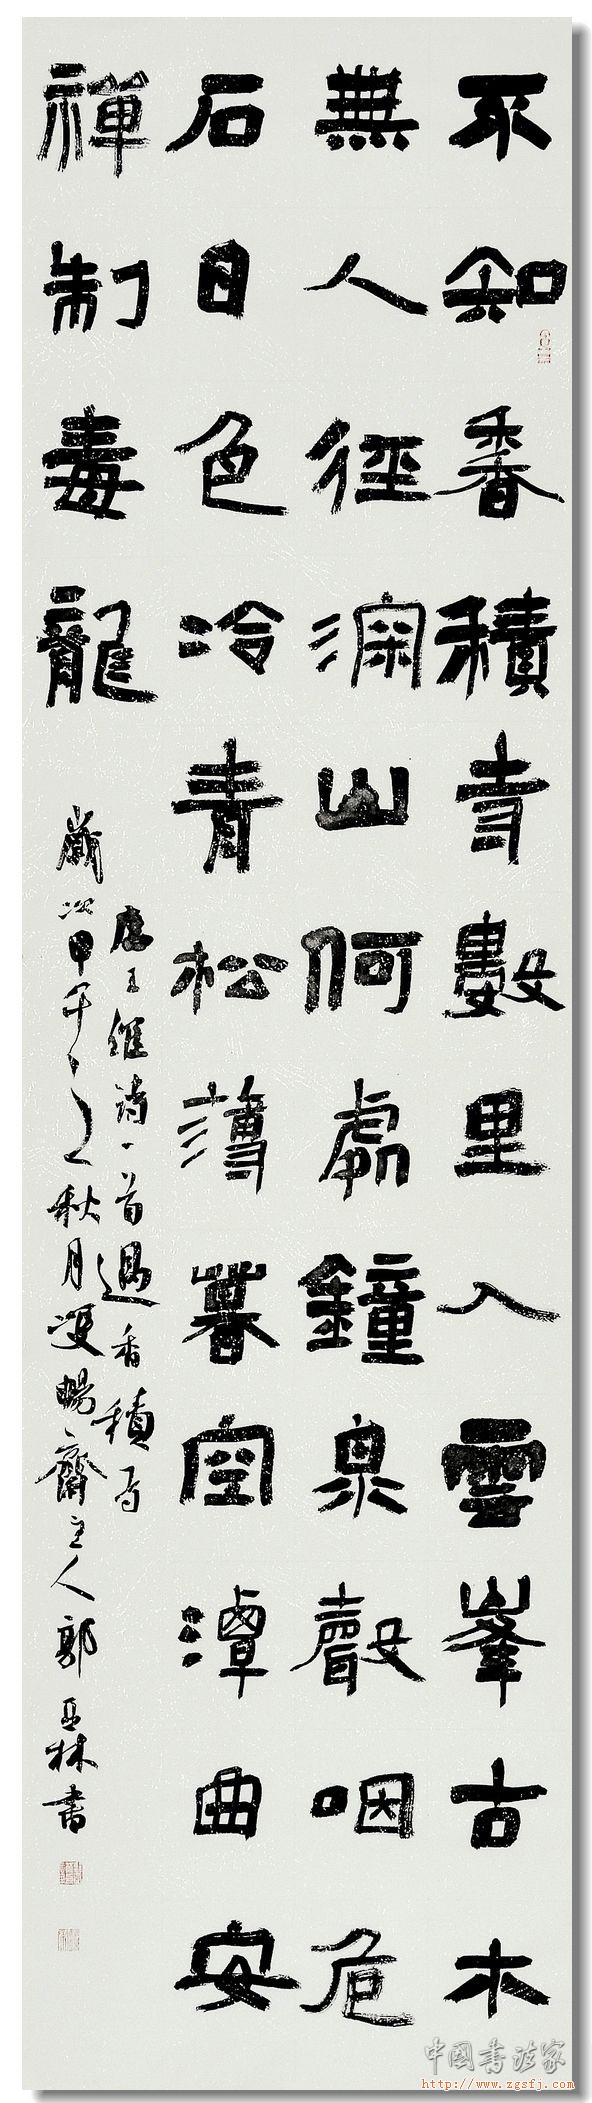 不知香積寺數里入雲峯古木
無人徑深山何處鐘泉聲咽危
石日色冷青松薄暮空潭曲安
禪制毒龍
唐王維詩一首過香積寺
歲次甲午之秋月暢齋主人郭亞林書
中國書法家
http://www.zgsfj.com